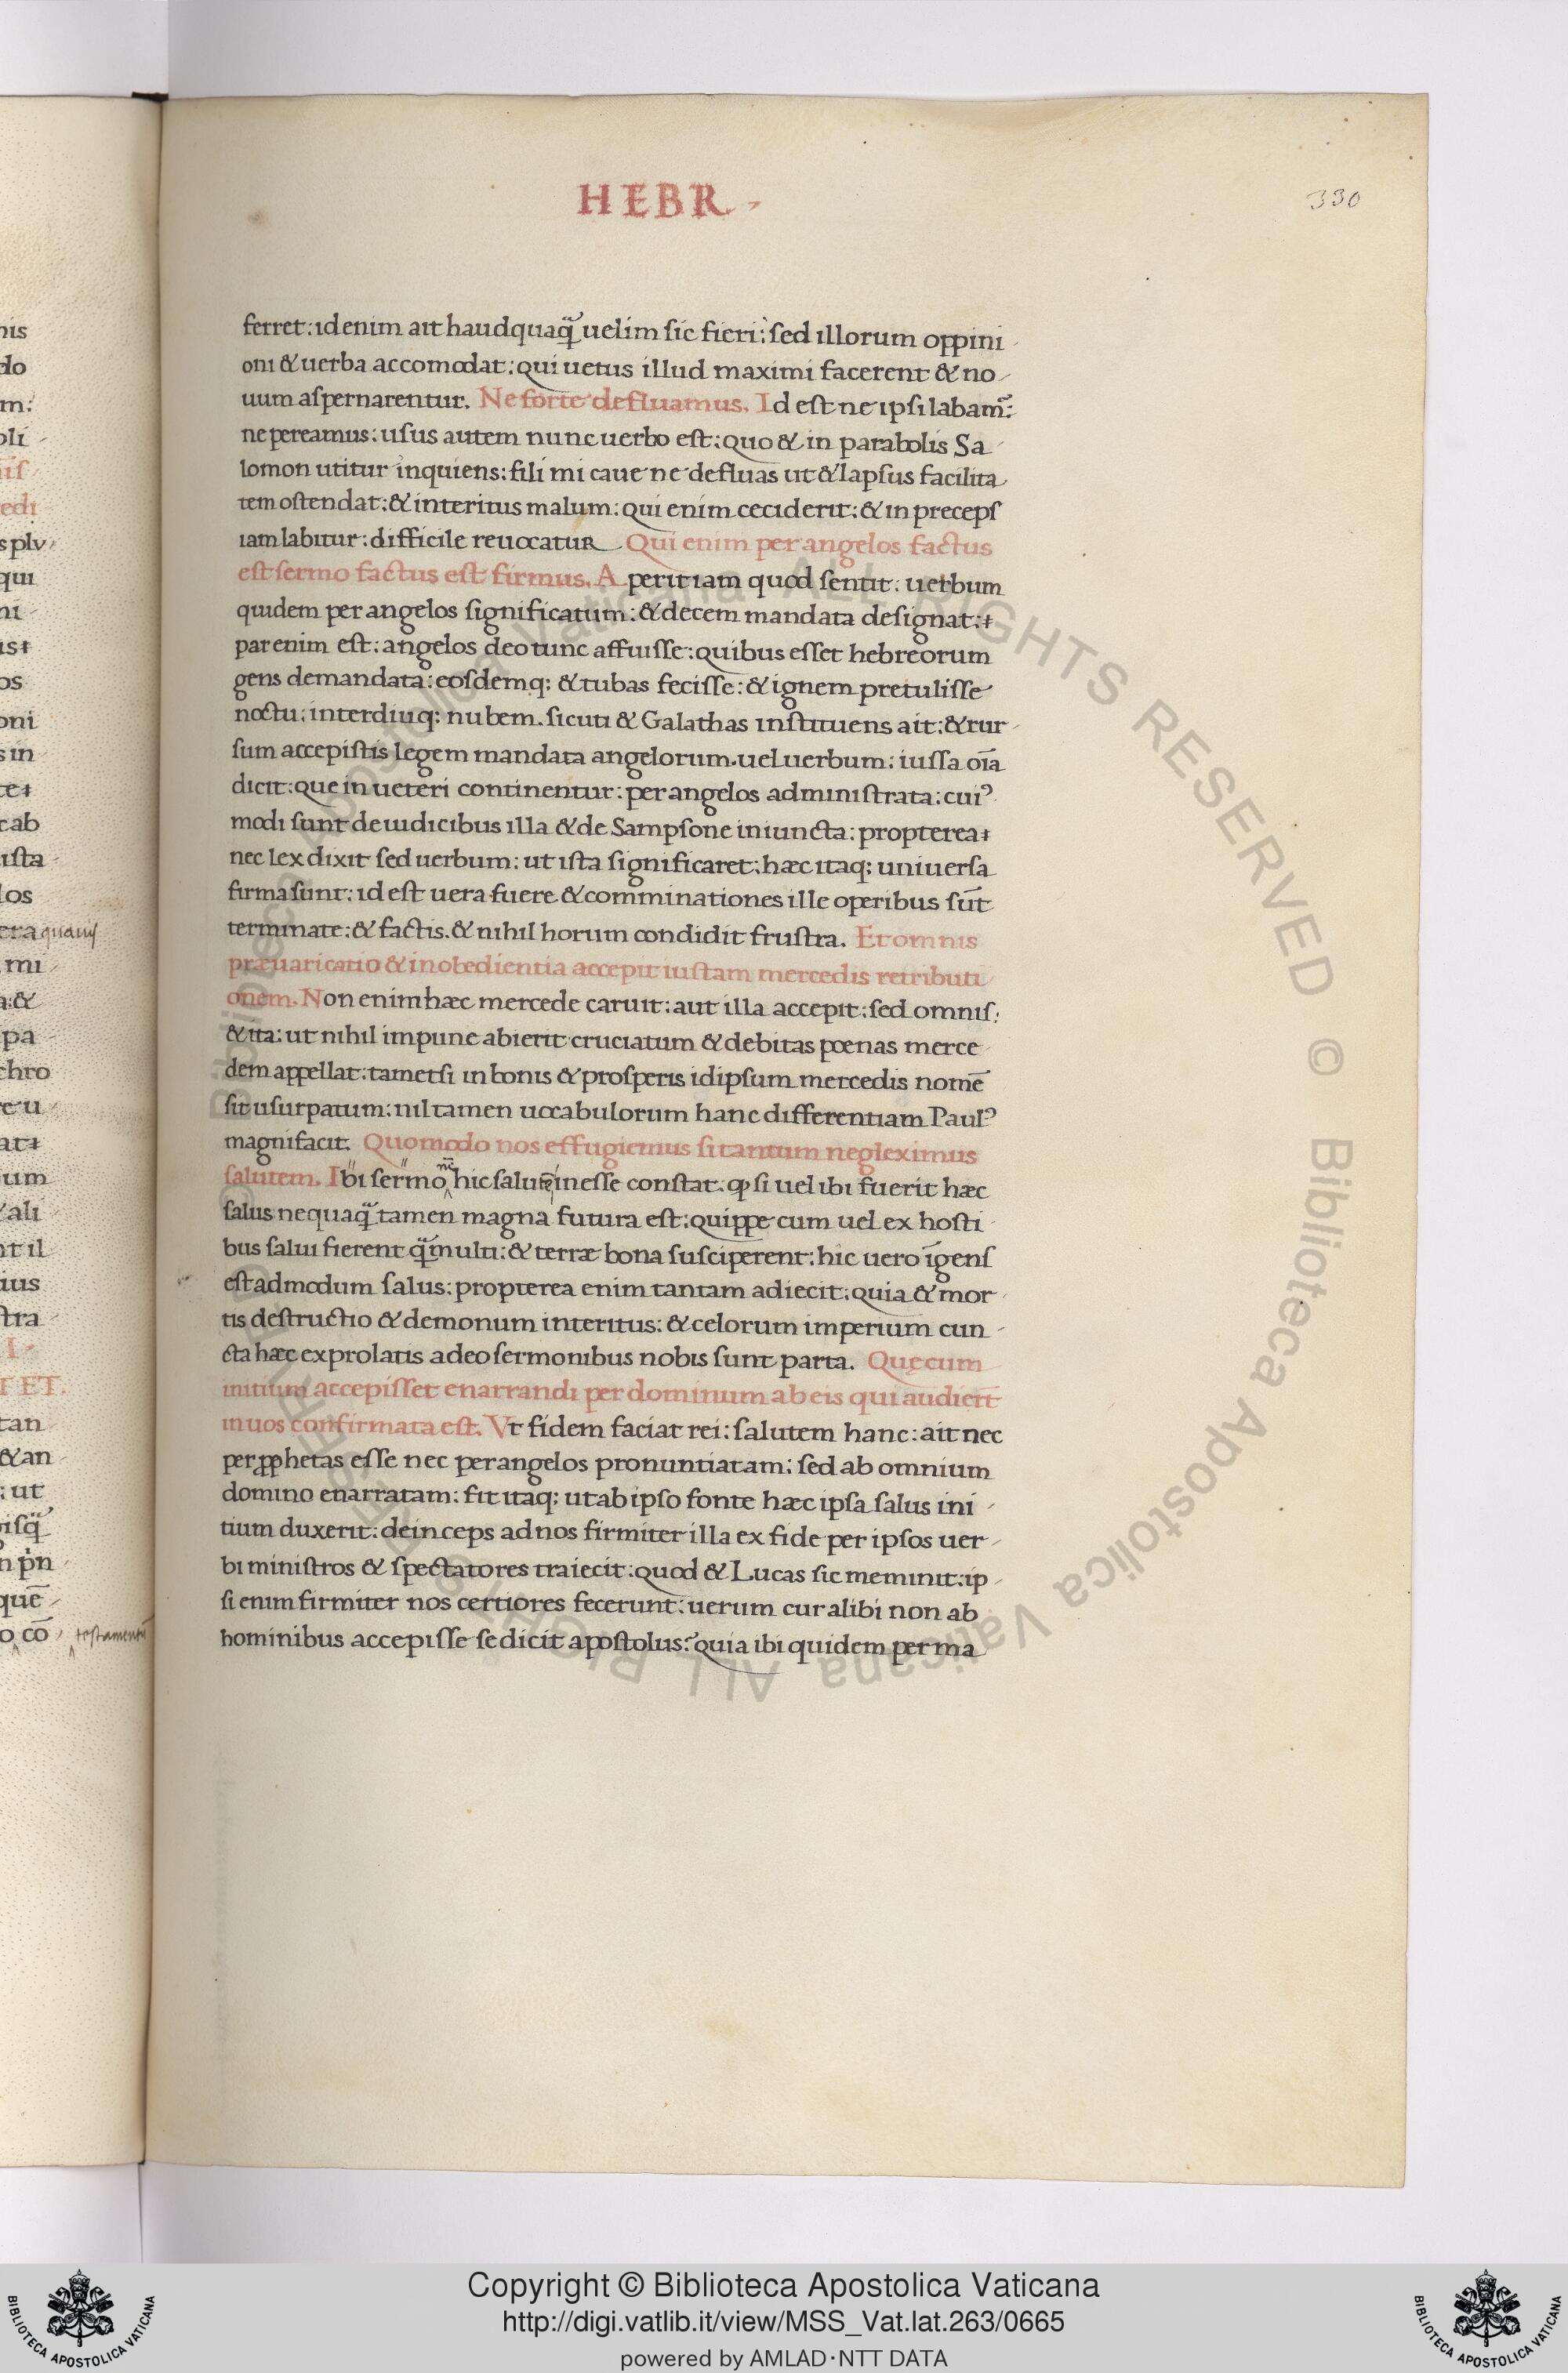 HEBR
330
ferret: id enim ait haudquaq̃ uelim sic fieri: sed illorum oppini-
oni & uerba accomodat: qui uetus illud maximi facerent & no-
uum aspernarentur. Ne forte defluamus. Id est ne ipsi labam̃:
ne pereamus: usus autem nunc uerbo est: quo & in parabolis Sa-
lomon utitur inquiens: fili mi caue ne defluas ut & lapsus facilita
tem ostendat: & interitus malum: qui enim ceciderit: & in preceps
iam labitur: difficile reuocatur Qui enim per angelos factus
est sermo factus est firmus. Aperit iam quod sentit. uerbum
quidem per angelos significatum: & decem mandata designat:
par enim est: angelos deo tunc affuisse: quibus esset hebreorum
gens demandata: eosdemq; & tubas fecisse: & ignem pretulisse
noctu: interdiuq; nubem. sicuti & Galathas instituens ait: & rur-
sum accepistis legem mandata angelorum. uel uerbum: iussa oĩa
dicit: que in ueteri continentur: per angelos administrata: cuiꝰ
modi sunt de iudicibus illa & de Sampsone iniuncta: propterea
nec lex dixit sed uerbum: ut ista significaret: hæc itaq; uniuersa
firma sunt: id est uera fuere & comminationes ille operibus sūt
terminate: & factis. & nihil horum condidit frustra. Et omnis
præuaricatio & inobedientia accepit iustam mercedis retributi
onem. Non enim hæc mercede caruit: aut illa accepit: sed omnis:
& ita: ut nihil impune abierit cruciatum & debitas poenas merce
dem appellat: tametsi in bonis & prosperis idipsum mercedis nomē
sit usurpatum: nil tamen uocabulorum hanc differentiam Paulꝰ
magnifacit. Quomodo nos effugiemus si tantum neglexımus
salutem. Ibi sermo hic salutē inesse constat. ꝙ si uel ibi fuerit hæc
salus nequaq̃ tamen magna futura est: quippe cum uel ex hosti-
bus salui fierent q̃multi: & terræ bona susciperent: hic uero īgens
est admodum salus: propterea enim tantam adiecit: quia & mor-
tis destructio & demonum interitus: & celorum imperium cun-
cta hæc ex prolatis adeo sermonibus nobis sunt parta. Quę cum
initium accepisset enarrandi per dominum ab eis qui audiert̄
in uos confirmata est. Vt fidem faciat rei: salutem hanc: ait nec
per ꝓphetas esse nec per angelos pronuntiatam: sed ab omnium
domino enarratam: fit itaq; ut ab ipso fonte hæc ipsa salus ini-
tium duxerit: deinceps ad nos firmiter illa ex fide per ipsos uer-
bi ministros & spectatores traiecit: quod & Lucas sic meminit: ip-
si enim firmiter nos certiores fecerunt: uerum cur alibi non ab
hominibus accepisse se dicit apostolus? quia ibi quidem per ma
Copyright © Biblioteca Apostolica Vaticana
http://digi.vatlib.it/view/MSS_Vat.lat.263/0665
powered by AMLAD·NTT DATA